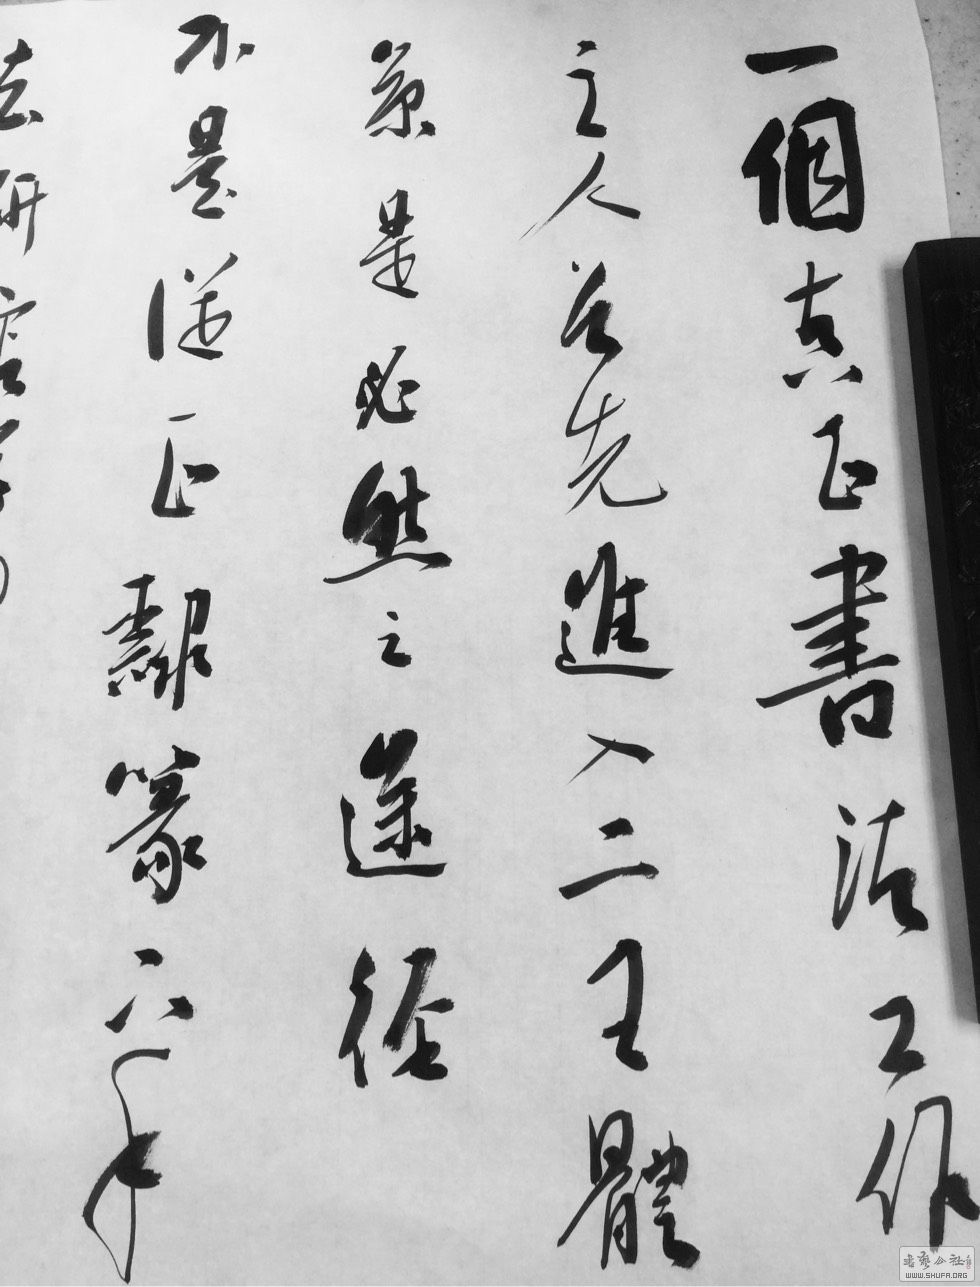 一個真正書法工作
之人首先進入二王體
是必然之途徑
不是從正隸篆下手
研究
书艺公社
WWW.SHUFA.ORG